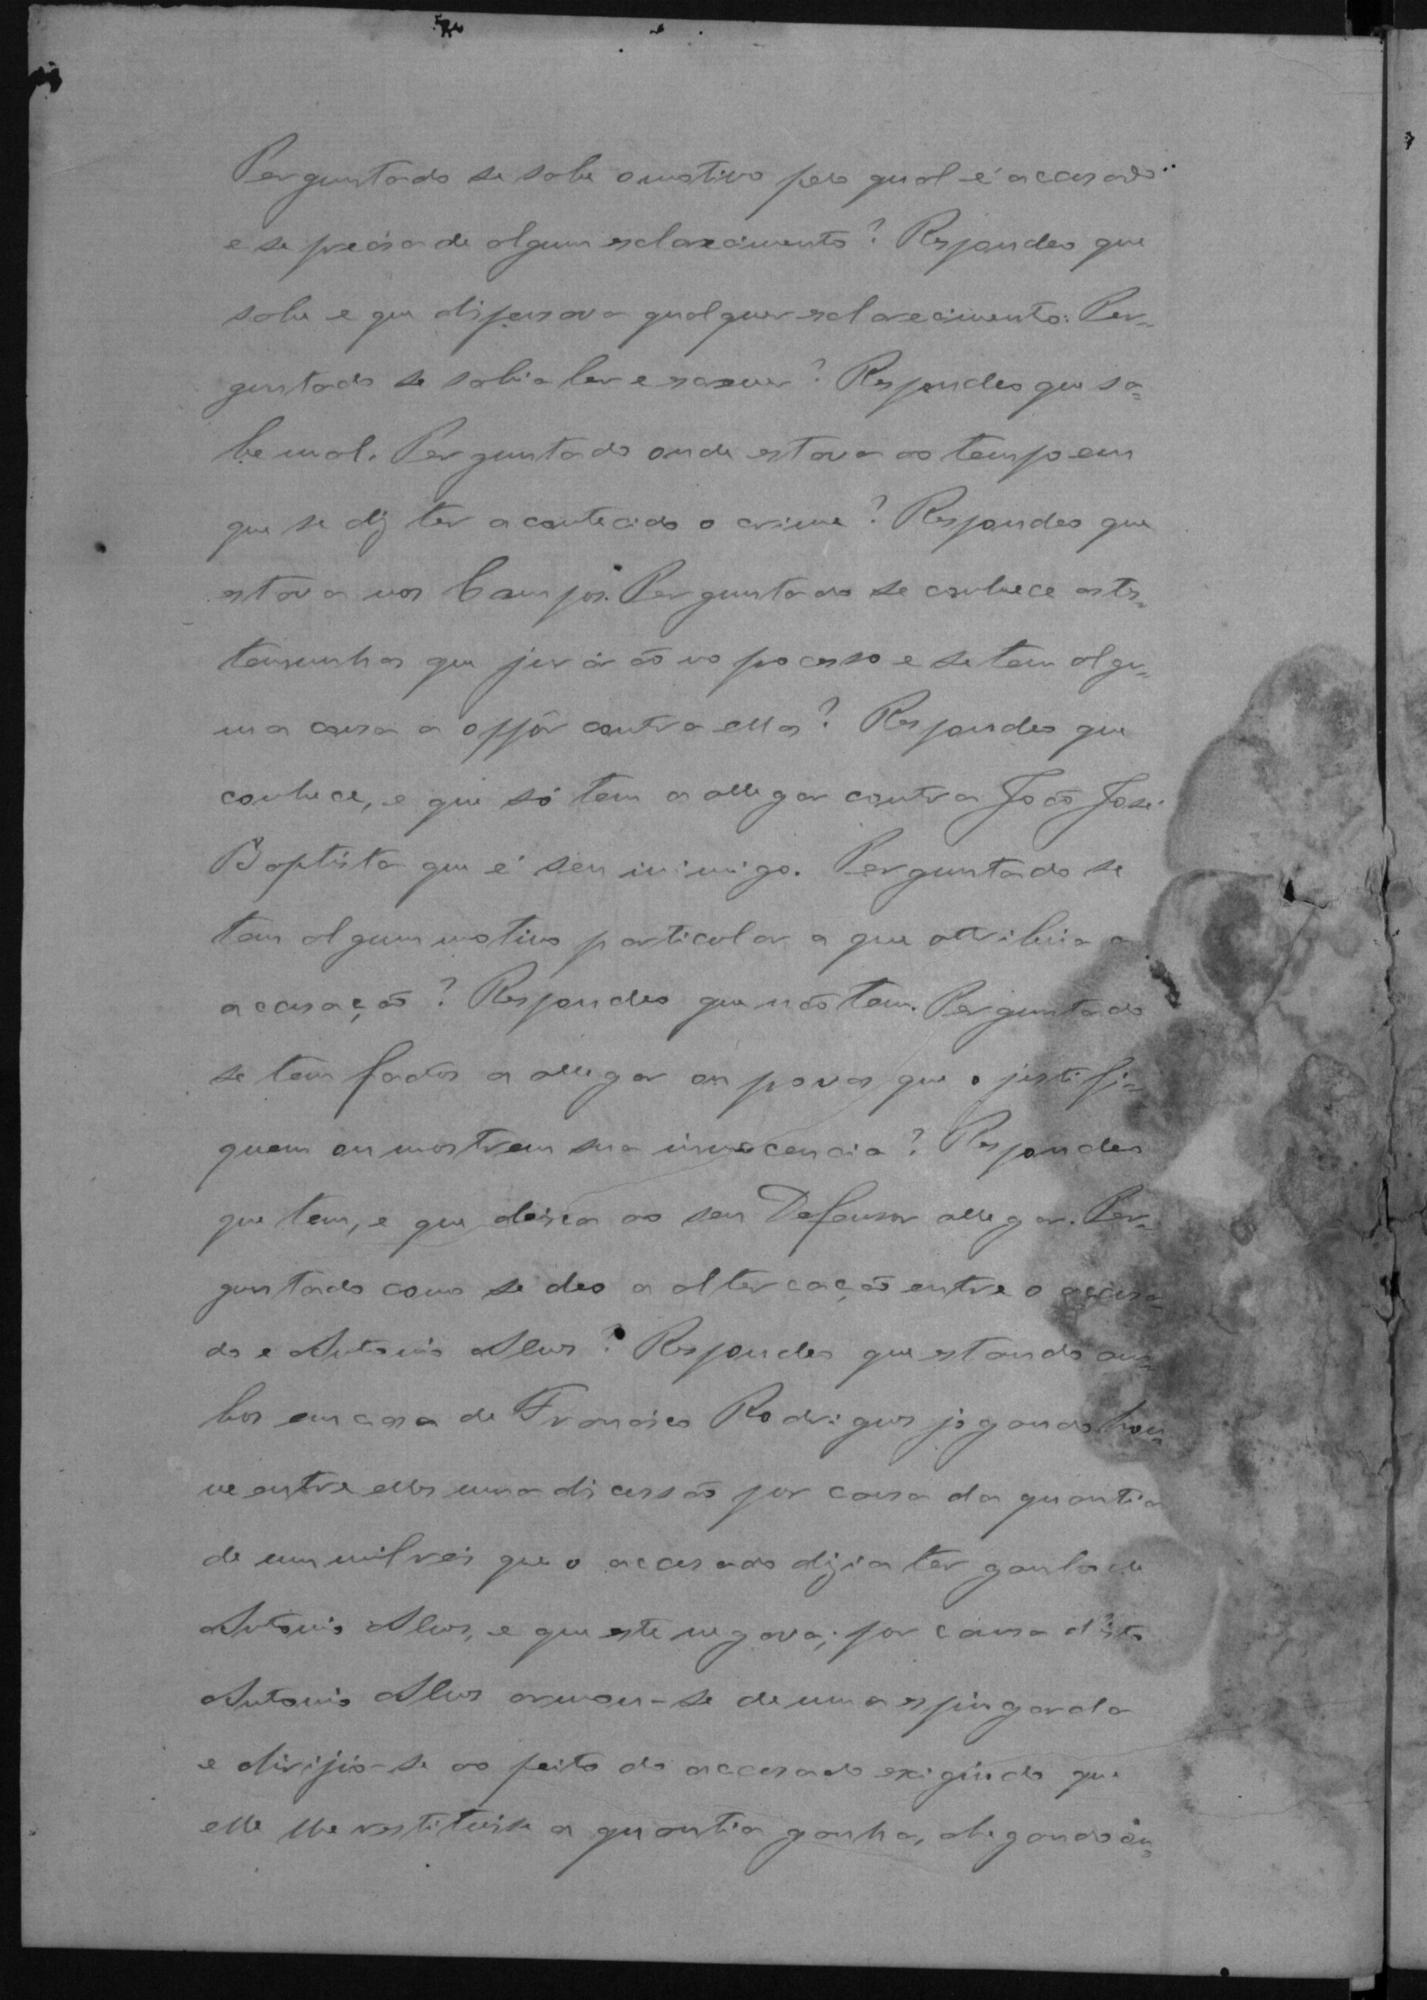 Perguntado se sabe o motivo pelo qual é accusado
e se precisa de algum esclarecimento? Respondeo que
sabe e que dispensava qualquer esclarecimento: Per-
guntado se sabia ler e escrever? Respondeo que sa-
be mal. Perguntado onde estava ao tempo em
que se diz ter acontecido o crime? Respondeo que
estava nos Campos. Perguntado se conhece as tes-
temunhas que jurárão no pocesso e se tem algu-
ma cousa a oppôr contra ellas? Respondeo que
conhece, e que só tem a allegar contra João José
Baptista que é seu inimigo. Perguntado se
tem algum motivo particular a que attribúa a
accusação? Respondeo que não tem. Perguntado
se tem factos a allegar ou povas que o justifi-
quem ou mostrem sua innocencia? Respondeo
que tem, e que deixa ao seu Defensor allegar. Per-
guntado como se deo a altercação entre o accusa-
do e Antonio Alves? Respondeo que estando am-
bos em casa de Francisco Rodrigues jogando hou-
ve entre elles uma discussão por causa da quantia
de um mil reis que o accusado dizia ter ganho de
Antonio Alves, e que este negava; por causa disto
Antonio Alves armou-se de uma espingarda
e dirijio-se ao peito do accusado exigindo que
elle lhe restituisse a quantia ganha, chegando